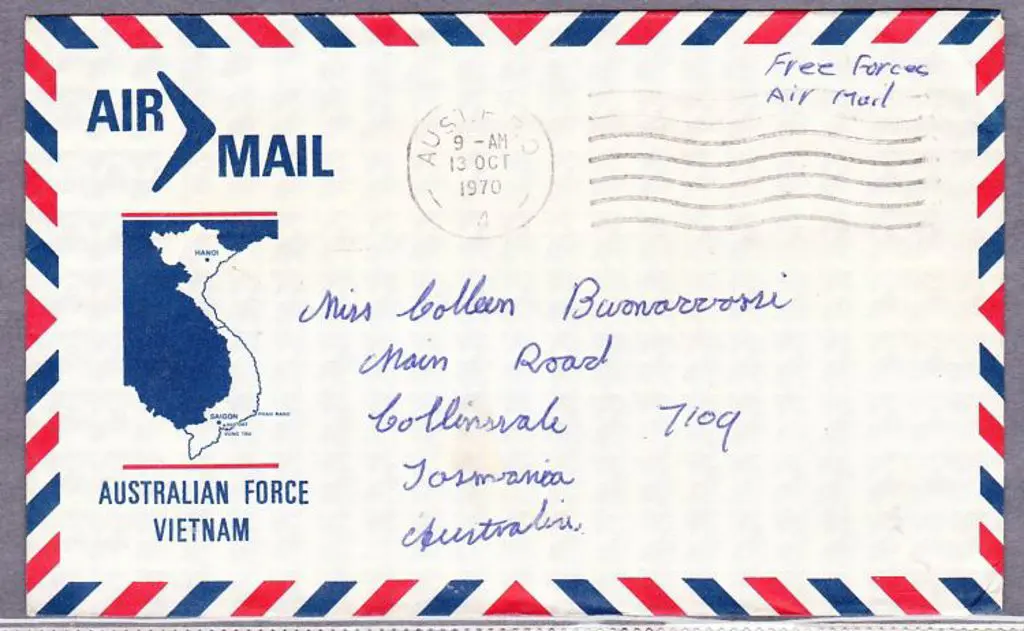 Free Forces
Air Mail
AIR
MAIL
9 - AM
13 OCT
1970
4
HANOI
SAIGON
PHAN RANG
NUI DAT
VUNG TAU
Miss Colleen
Main Road
Collinsvale 7109
Tasmania
Australia.
AUSTRALIAN FORCE
VIETNAM